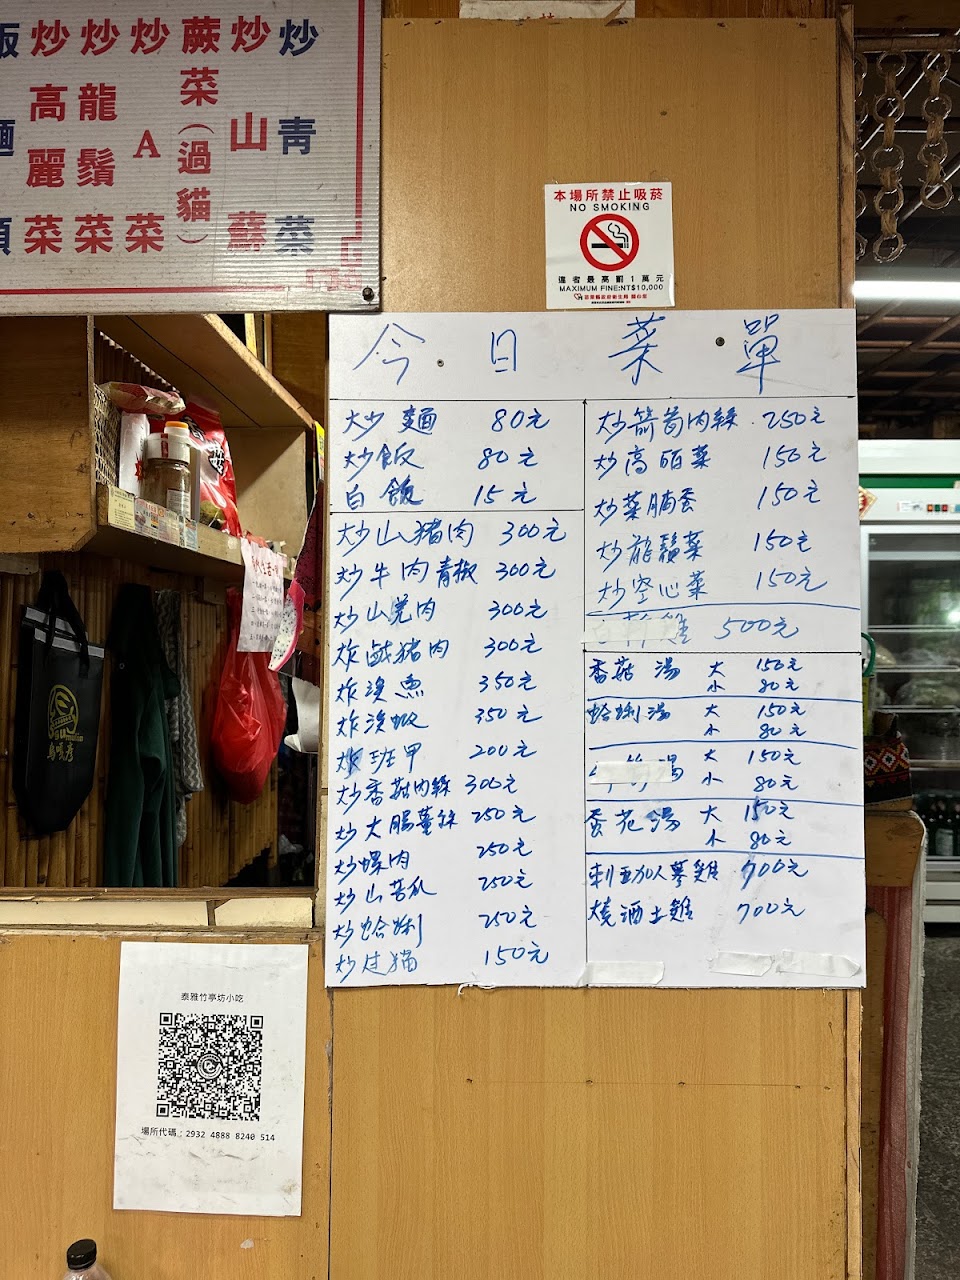 炒青菜
炒山蘇
蕨菜(過貓)
炒A菜
炒龍鬚菜
炒高麗菜
本場所禁止吸菸
NO SMOKING
違者最高罰1萬元
MAXIMUM FINE:NT$10,000
今日菜單
炒麵 80元
炒飯 80元
白飯 15元
炒山豬肉 300元
炒牛肉青椒 300元
炒山羌肉 300元
炸鹹豬肉 300元
炸溪魚 350元
炸溪蝦 350元
炸班甲 200元
炒香菇肉絲 300元
炒大腸薑絲 250元
炒螺肉 250元
炒山苦瓜 250元
炒蛤蜊 250元
炒过猫 150元
炒箭筍肉絲 250元
炒高丽菜 150元
炒菜脯蛋 150元
炒龍鬚菜 150元
炒空心菜 150元
雞 500元
香菇湯 大 150元
小 80元
蛤蜊湯 大 150元
小 80元
湯 大 150元
小 80元
蛋花湯 大 150元
小 80元
刺五加人蔘雞 700元
燒酒土雞 700元
泰雅竹亭坊小吃
場所代碼：2932 4888 8240 514